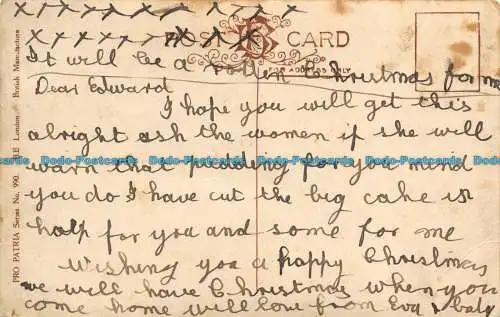 x x x x x x x x x x x x
x x x x x x x x x x
POST CARD
It will be a rotten Christmas for me
ADDRESS ONLY
Dear Edward
I hope you will get this
alright ask the women if she will
Dodo-Postcards Dodo-Postcards Dodo-Postcards Dodo-Postcards Dodo-Postcards
warn that pudding for you mind
you do I have cut the big cake in
half for you and some for me
wishing you a happy Christmas
we will have Christmas when you
come home will love from Eva & baby
PRO PATRIA Series No. 990. London. British Manufacture